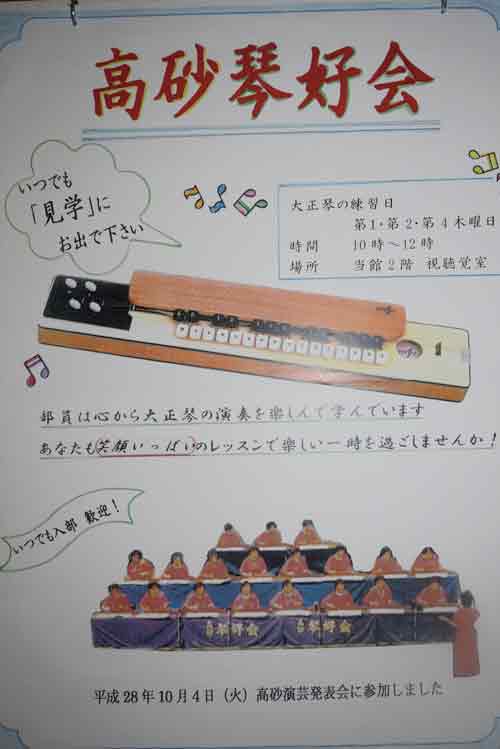 高砂琴好会
いつでも
「見学」に
お出で下さい
大正琴の練習日
第1・第2・第4木曜日
時間 10時〜12時
場所 当館2階 視聴覚室
部員は心から大正琴の演奏を楽しんで学んでいます
あなたも笑顔いっぱいのレッスンで楽しい一時を過ごしませんか！
いつでも入部 歓迎！
琴好会
琴好会
平成28年10月4日（火）高砂演芸発表会に参加しました